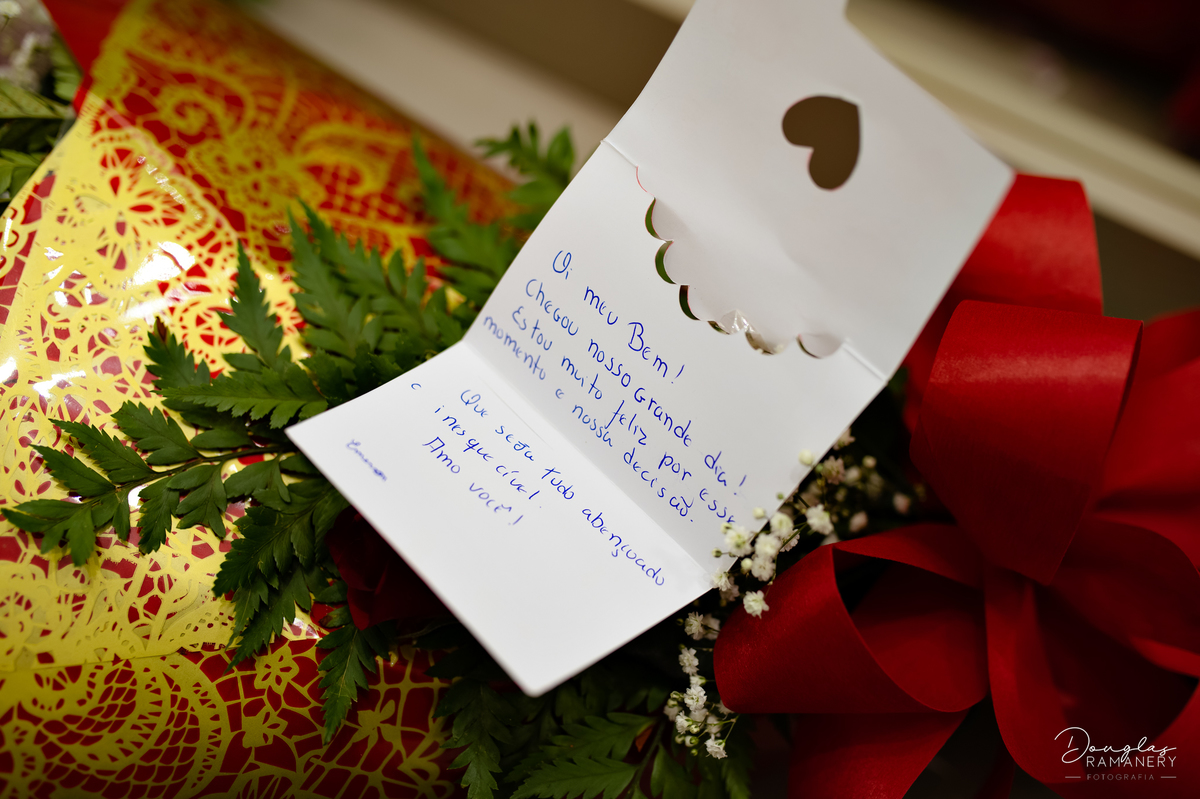 Oi meu Bem!
Chegou nosso grande dia!
Estou muito feliz por esse
momento e nossa decisão.
Que seja tudo abençoado
e inesquecível!
Amo você!
Douglas
RAMANERY
FOTOGRAFIA